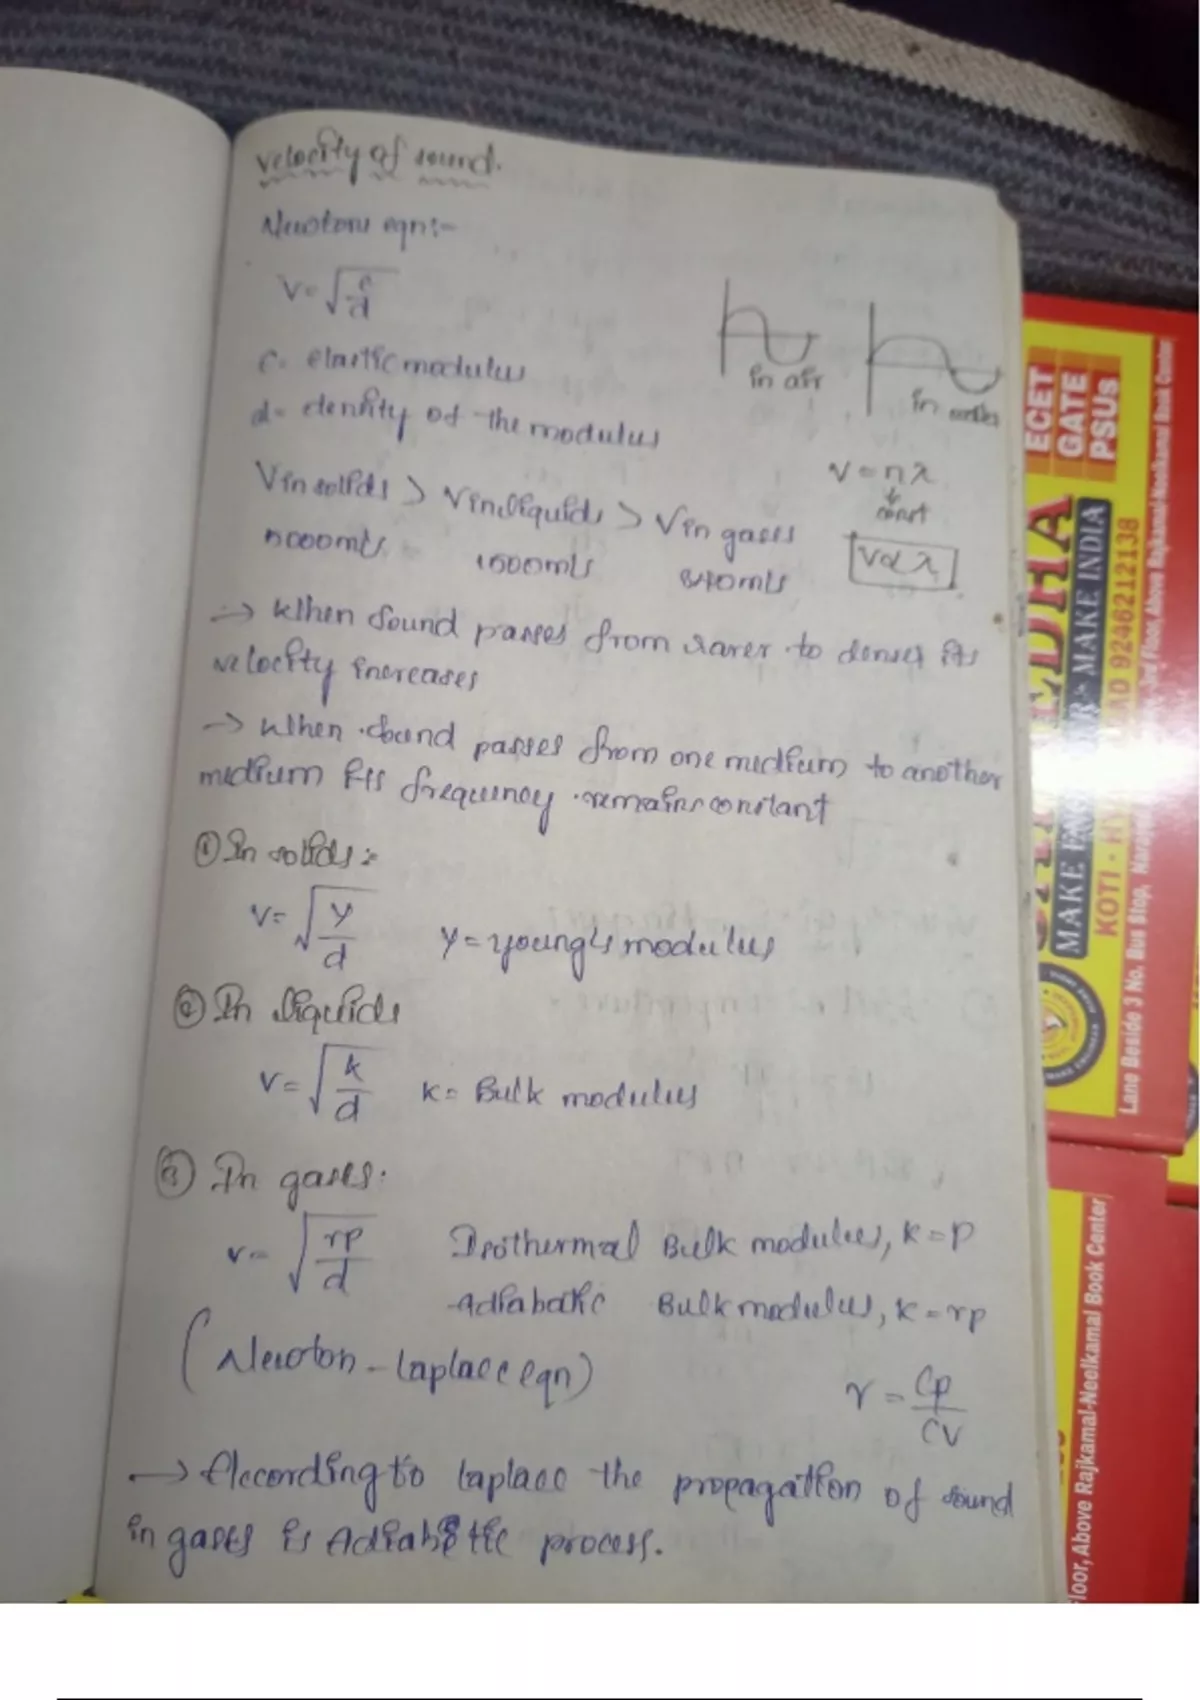 velocity of sound.
Newtons eqn:-
V = √e/d
e = elastic modulus
d = density of the modulus
in air
in water
V = nλ
↓
const
V ∝ λ
V in solids > V in liquids > V in gases
5000m/s 1500m/s 340m/s
→ When sound passes from rarer to denser its
velocity increases
→ When sound passes from one midium to another
midium its frequency remains constant
① In solids:
V = √y/d y = young's modulus
② In liquids
V = √k/d K = Bulk modulus
③ In gases.
V = √rp/d Isothermal Bulk modulus, K = P
Adiabatic Bulk modulus, K = rp
(Newton - laplace eqn)
r = Cp/CV
→ According to laplace the propagation of sound
in gases is Adiabatic process.
ECET
GATE
PSUs
MAKE INDIA
9246212138
KOTI - HY
Lane Beside 3 No. Bus Stop,
3rd Floor, Above Rajkamal-Neelkamal Book Center
loor, Above Rajkamal-Neelkamal Book Center